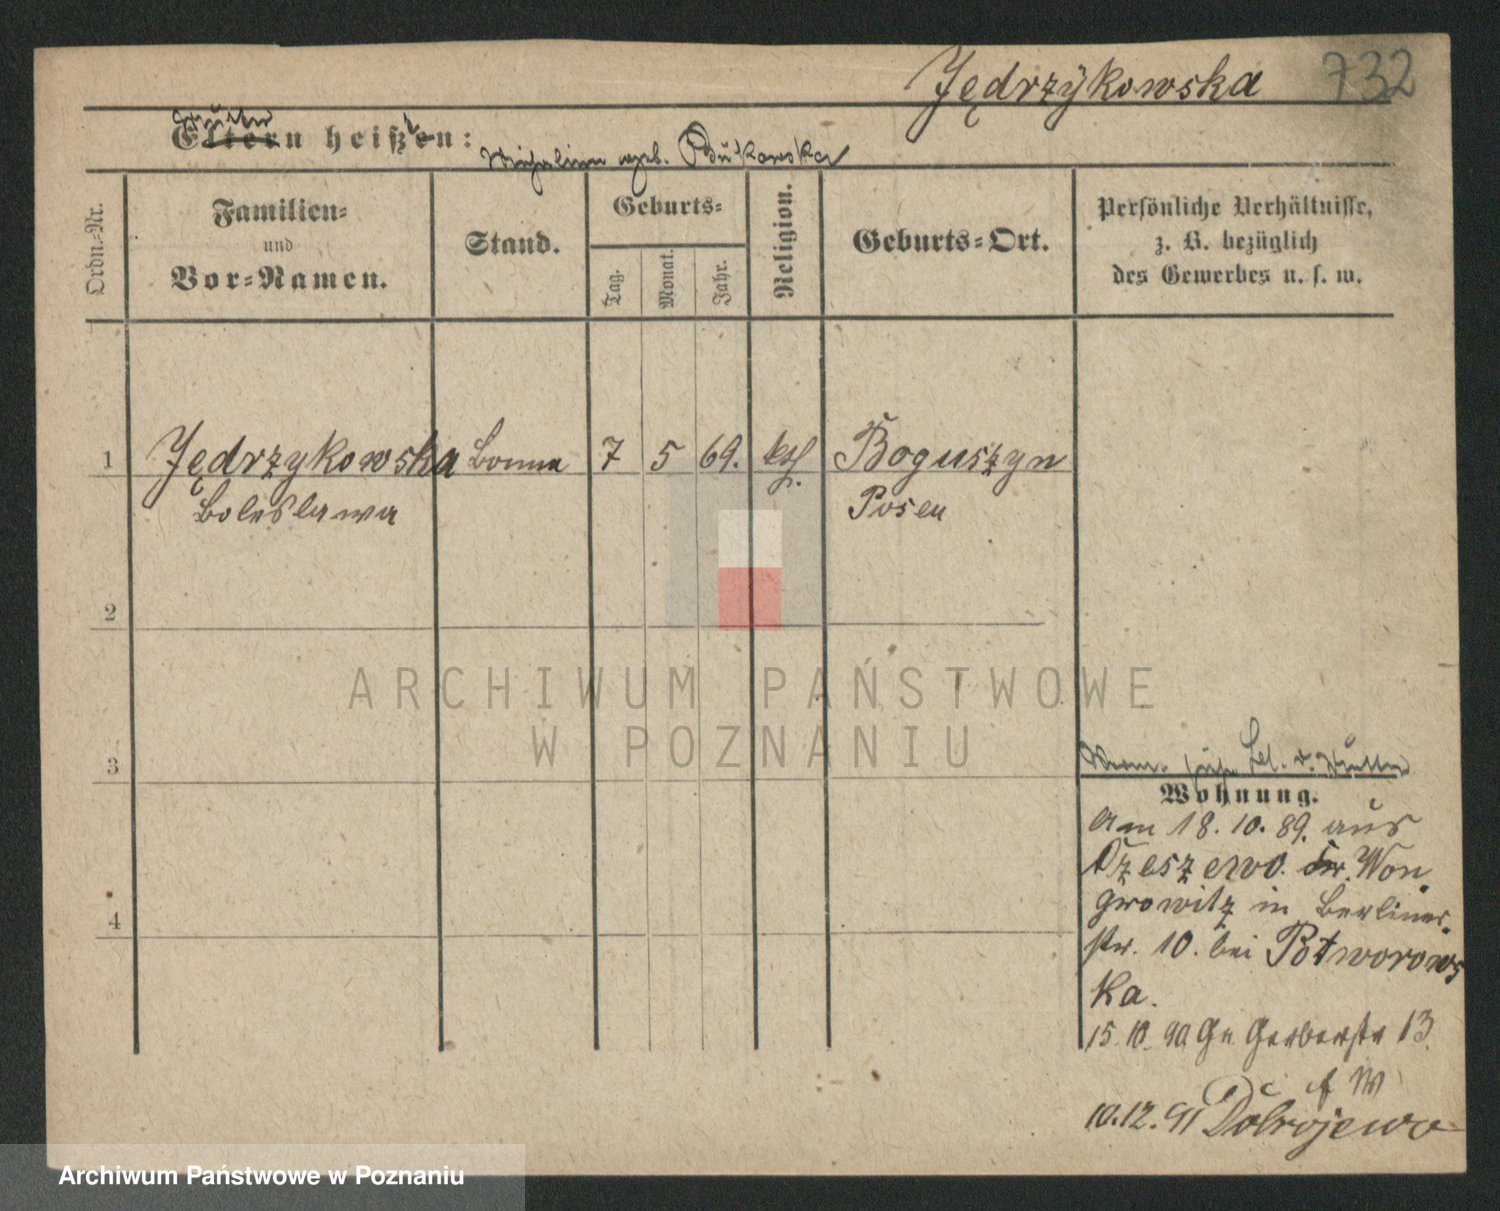 Jędrzykowska 732
Mutter
Eltern heißen:
geb. Bukowska
Ordn.-Nr.
Familien-
und
Vor-Namen.
Stand.
Geburts-
Tag.
Monat.
Jahr.
Religion.
Geburts-Ort.
Persönliche Verhältnisse,
z. B. bezüglich
des Gewerbes u. s. w.
1 Jędrzykowska Bonna 7 5 69. kth. Boguszyn
Boleslawa Posen
2
3
4
d. Mutter
Wohnung.
Am 18. 10. 89. aus
Czeszewo. Kr. Won
growitz in Berliner-
str. 10. bei Potworows
ka.
15. 10. 90. Gr. Gerberstr 13.
10.12.91 Dobrojewo
ARCHIWUM PAŃSTWOWE
W POZNANIU
Archiwum Państwowe w Poznaniu